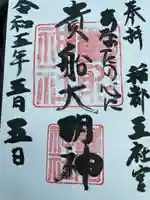 奉拝
稲部王社宮
あなたの心に
貴船大明神
令和五年五月五日